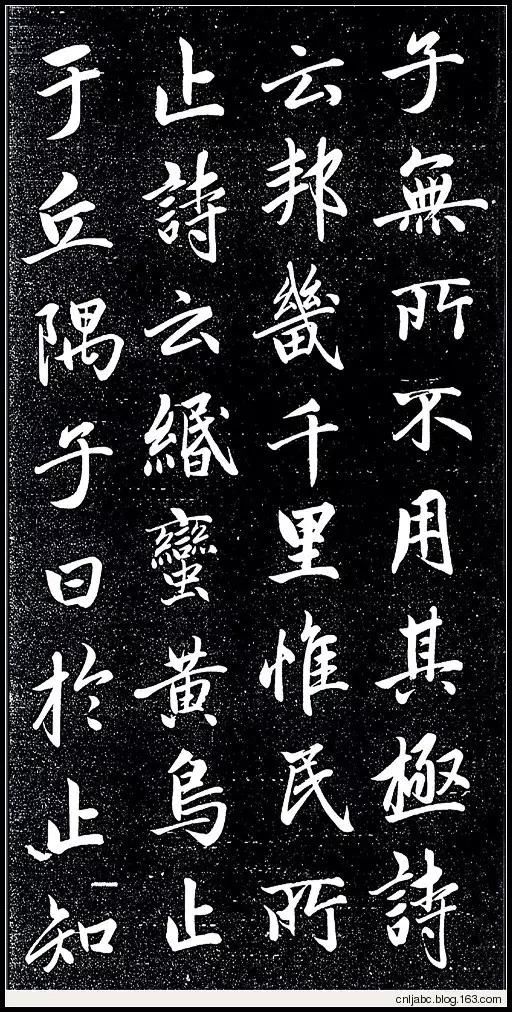 子無所不用其極詩
云邦畿千里惟民所
止詩云緡蠻黃鳥止
于丘隅子曰於止知
cnljabc.blog.163.com